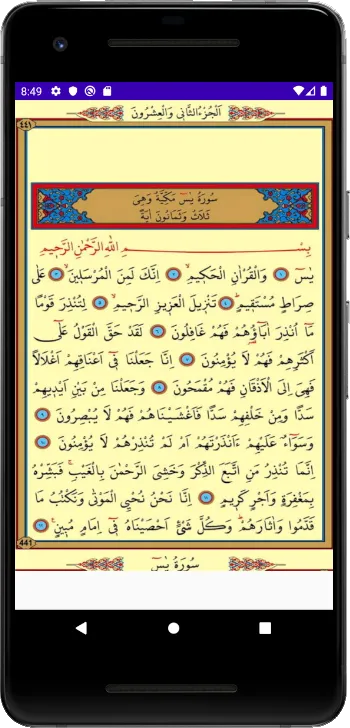 8:49
اَلْجُزْءُ الثَّانِى وَالْعِشْرُونَ
٤٤١
سُورَةُ يٰسٓ مَكِّيَّةٌ وَهِىَ
ثَلَاثٌ وَثَمَانُونَ اٰيَةً
بِسْمِ اللّٰهِ الرَّحْمٰنِ الرَّحٖيمِ
يٰسٓ ١ وَالْقُرْاٰنِ الْحَكٖيمِ ٢ اِنَّكَ لَمِنَ الْمُرْسَلٖينَ ٣ عَلٰى
صِرَاطٍ مُسْتَقٖيمٍ ٤ تَنْزٖيلَ الْعَزٖيزِ الرَّحٖيمِ ٥ لِتُنْذِرَ قَوْمًا
مَٓا اُنْذِرَ اٰبَٓاؤُ۬هُمْ فَهُمْ غَافِلُونَ ٦ لَقَدْ حَقَّ الْقَوْلُ عَلٰٓى
اَكْثَرِهِمْ فَهُمْ لَا يُؤْمِنُونَ ٧ اِنَّا جَعَلْنَا فٖٓى اَعْنَاقِهِمْ اَغْلَالًا
فَهِىَ اِلَى الْاَذْقَانِ فَهُمْ مُقْمَحُونَ ٨ وَجَعَلْنَا مِنْ بَيْنِ اَيْدٖيهِمْ
سَدًّا وَمِنْ خَلْفِهِمْ سَدًّا فَاَغْشَيْنَاهُمْ فَهُمْ لَا يُبْصِرُونَ ٩
وَسَوَٓاءٌ عَلَيْهِمْ ءَاَنْذَرْتَهُمْ اَمْ لَمْ تُنْذِرْهُمْ لَا يُؤْمِنُونَ ١٠
اِنَّمَا تُنْذِرُ مَنِ اتَّبَعَ الذِّكْرَ وَخَشِىَ الرَّحْمٰنَ بِالْغَيْبِ فَبَشِّرْهُ
بِمَغْفِرَةٍ وَاَجْرٍ كَرٖيمٍ ١١ اِنَّا نَحْنُ نُحْيِ الْمَوْتٰى وَنَكْتُبُ مَا
قَدَّمُوا وَاٰثَارَهُمْ وَكُلَّ شَیْءٍ اَحْصَيْنَاهُ فٖٓى اِمَامٍ مُبٖينٍ ١٢
441
سُورَةُ يٰسٓ